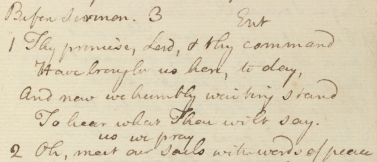 Before Sermon. 3 Ent
1 Thy promise, Lord, & thy command
Have brought us here, to day,
And now we humbly waiting stand
To hear what Thou wilt say.
us we pray
2 Oh, meet our souls with words of peace